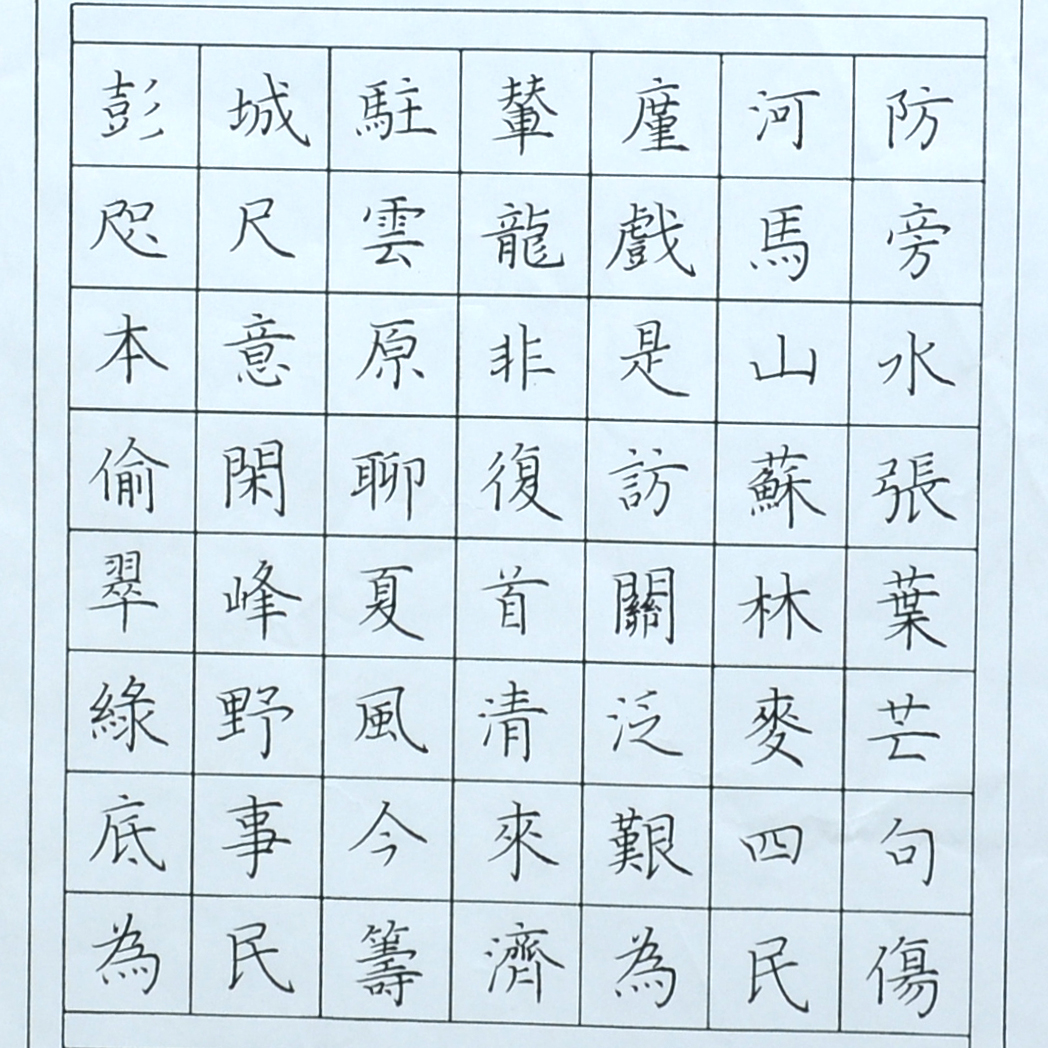 彭城駐輦廑河防
咫尺雲龍戲馬旁
本意原非是山水
偷閑聊復訪蘇張
翠峰夏首關林葉
綠野風清泛麥芒
底事今來艱四句
為民籌濟為民傷